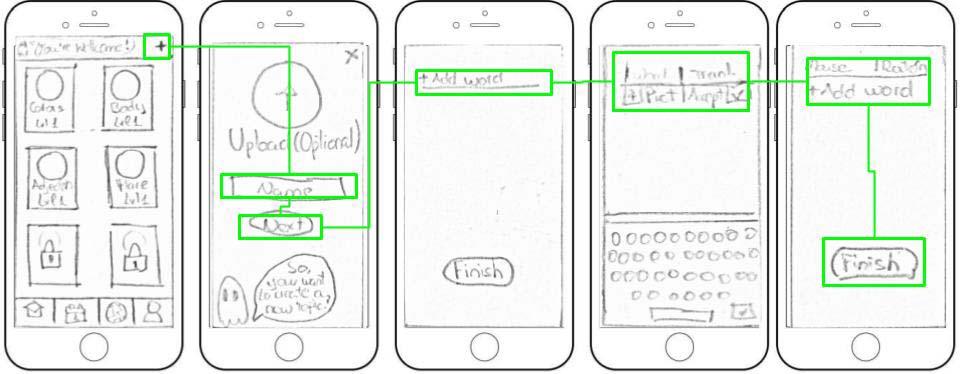 (You're Welcome!) +
Colors
Lvl 1
Body
Lvl 1
Lvl 1
Place
Lvl 1
X
Upload (Optional)
Name
Next
So,
you want
to create a
new topic?
+ Add word
Finish
Word | Transl.
+ Pict | Accept
Mouse | Ratón
+ Add word
Finish